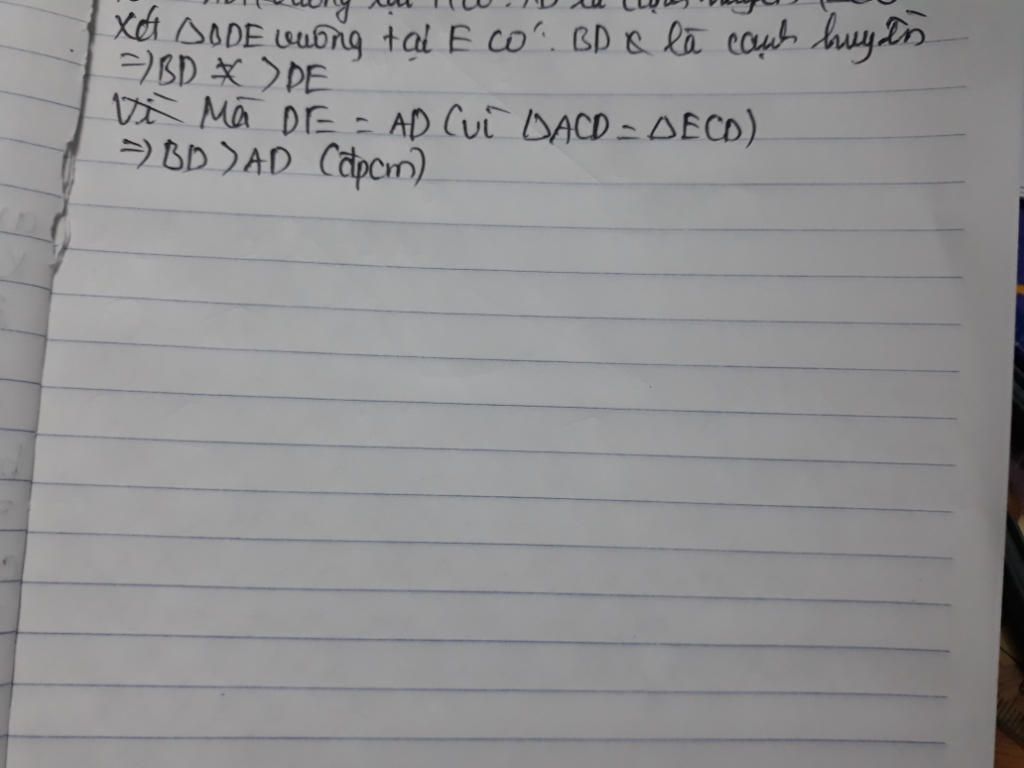 Xét ΔBDE vuông tại E có: BD là cạnh huyền
=> BD > DE
Mà DE = AD (vì ΔACD = ΔECD)
=> BD > AD (đpcm)